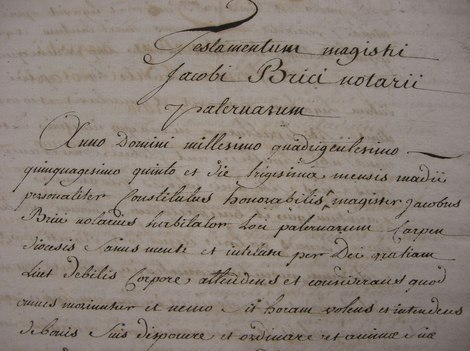 Testamentum magistri
Jacobi Brici notarii
palernarum
Anno Domini millesimo quadrigentesimo
quinquagesimo quinto et die trigesima mensis madii
personaliter Constitutus honorabilis magister Jacobus
Brici notarius habitator Loci palernarum Carpen
diocesis Sanus mente et intellectu per Dei gratiam
licet debilis Corpore, attendens et considerans quod
omnes moriuntur et nemo sit horam volens et intendens
de bonis suis disponere et ordinare et animae suae